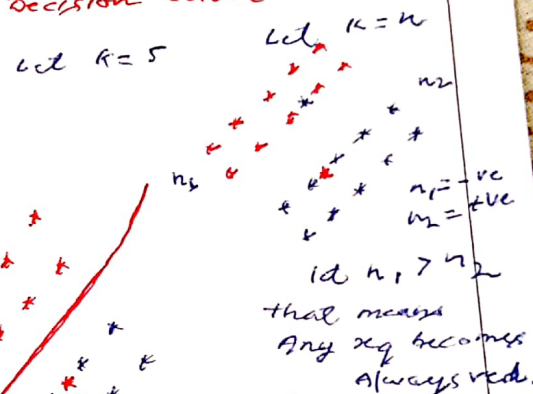 Decision
Let K = 5
Let K = n
n2
n1
n1 = -ve
n2 = +ve
id n1 > n2
that means
Any xq becomes
Always red.